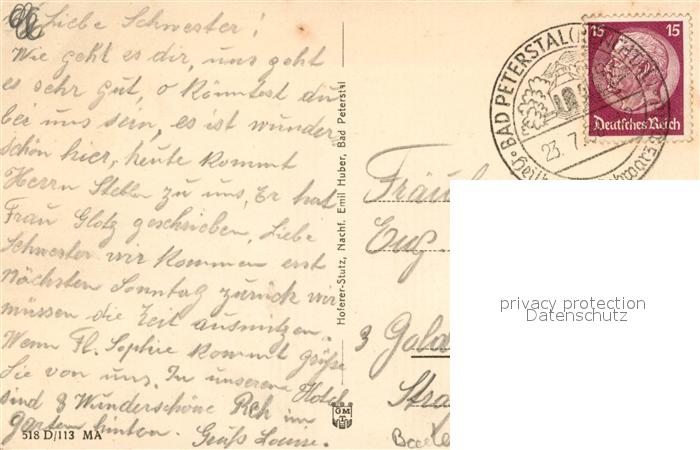 Liebe Schwester!
Wie geht es dir, uns geht
es sehr gut, o könntest du
bei uns sein, es ist wunder
schön hier, heute kommt
Herrn Stehlen zu uns, Er hat
Frau Glotz geschrieben, Liebe
Schwester wir kommen erst
nächsten Sonntag zurück wir
müssen die Zeit ausnützen.
Wenn Fl. Sophie kommt grüße
Sie von uns. In unserem Hotel
sind 8 Wunderschöne Reh im
garten hinten. Grüß Louise.
518 D/113 MA
Hoferer-Stutz, Nachf. Emil Huber, Bad Peterstal
BAD PETERSTAL
23. 7.
15 15
Deutsches Reich
Fräul
Eug
3 Gold
Stra
Bade
privacy protection
Datenschutz